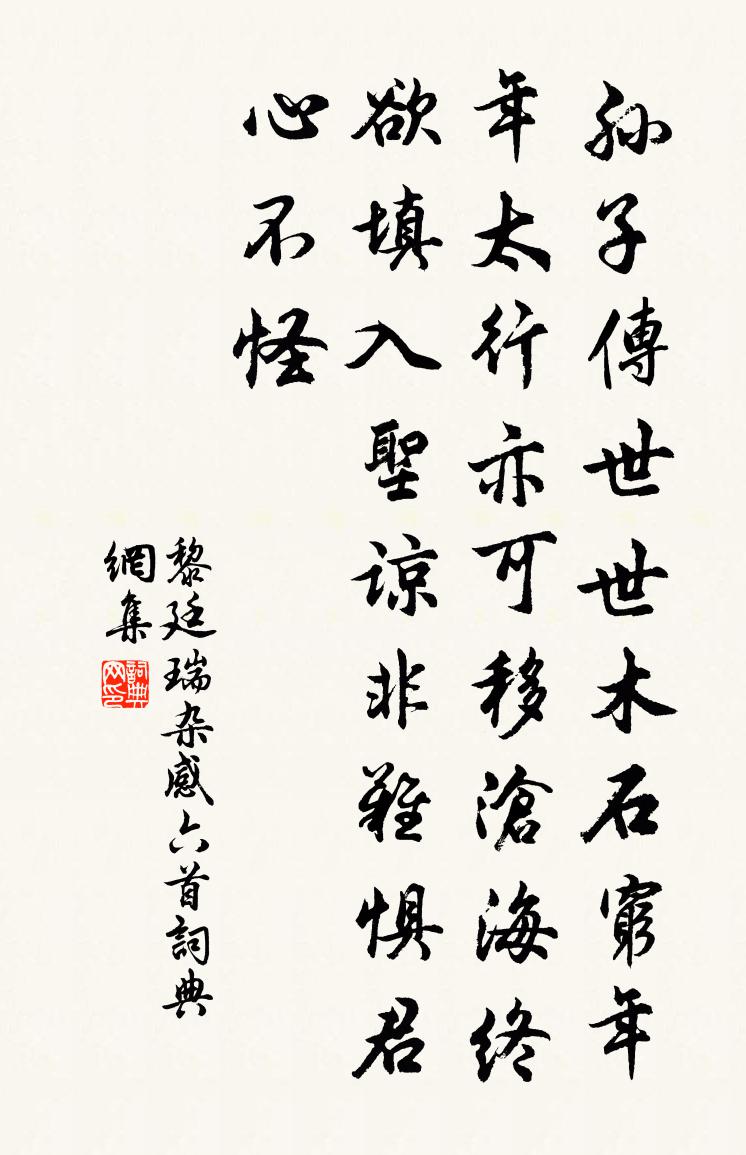 孫子傳世世木石窮年
年太行亦可移滄海終
欲填入聖諒非難懼君
心不怪
黎廷瑞杂感六首詞典
網集
詞典
网印